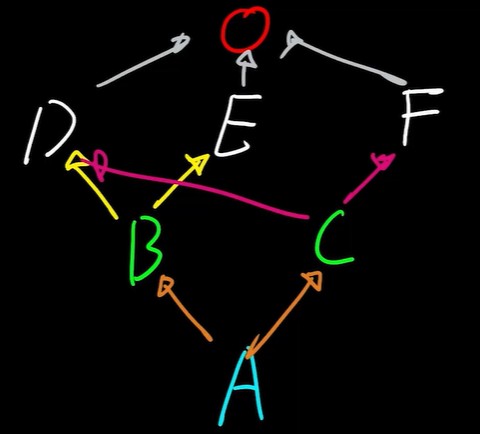 O
D E F
B C
A